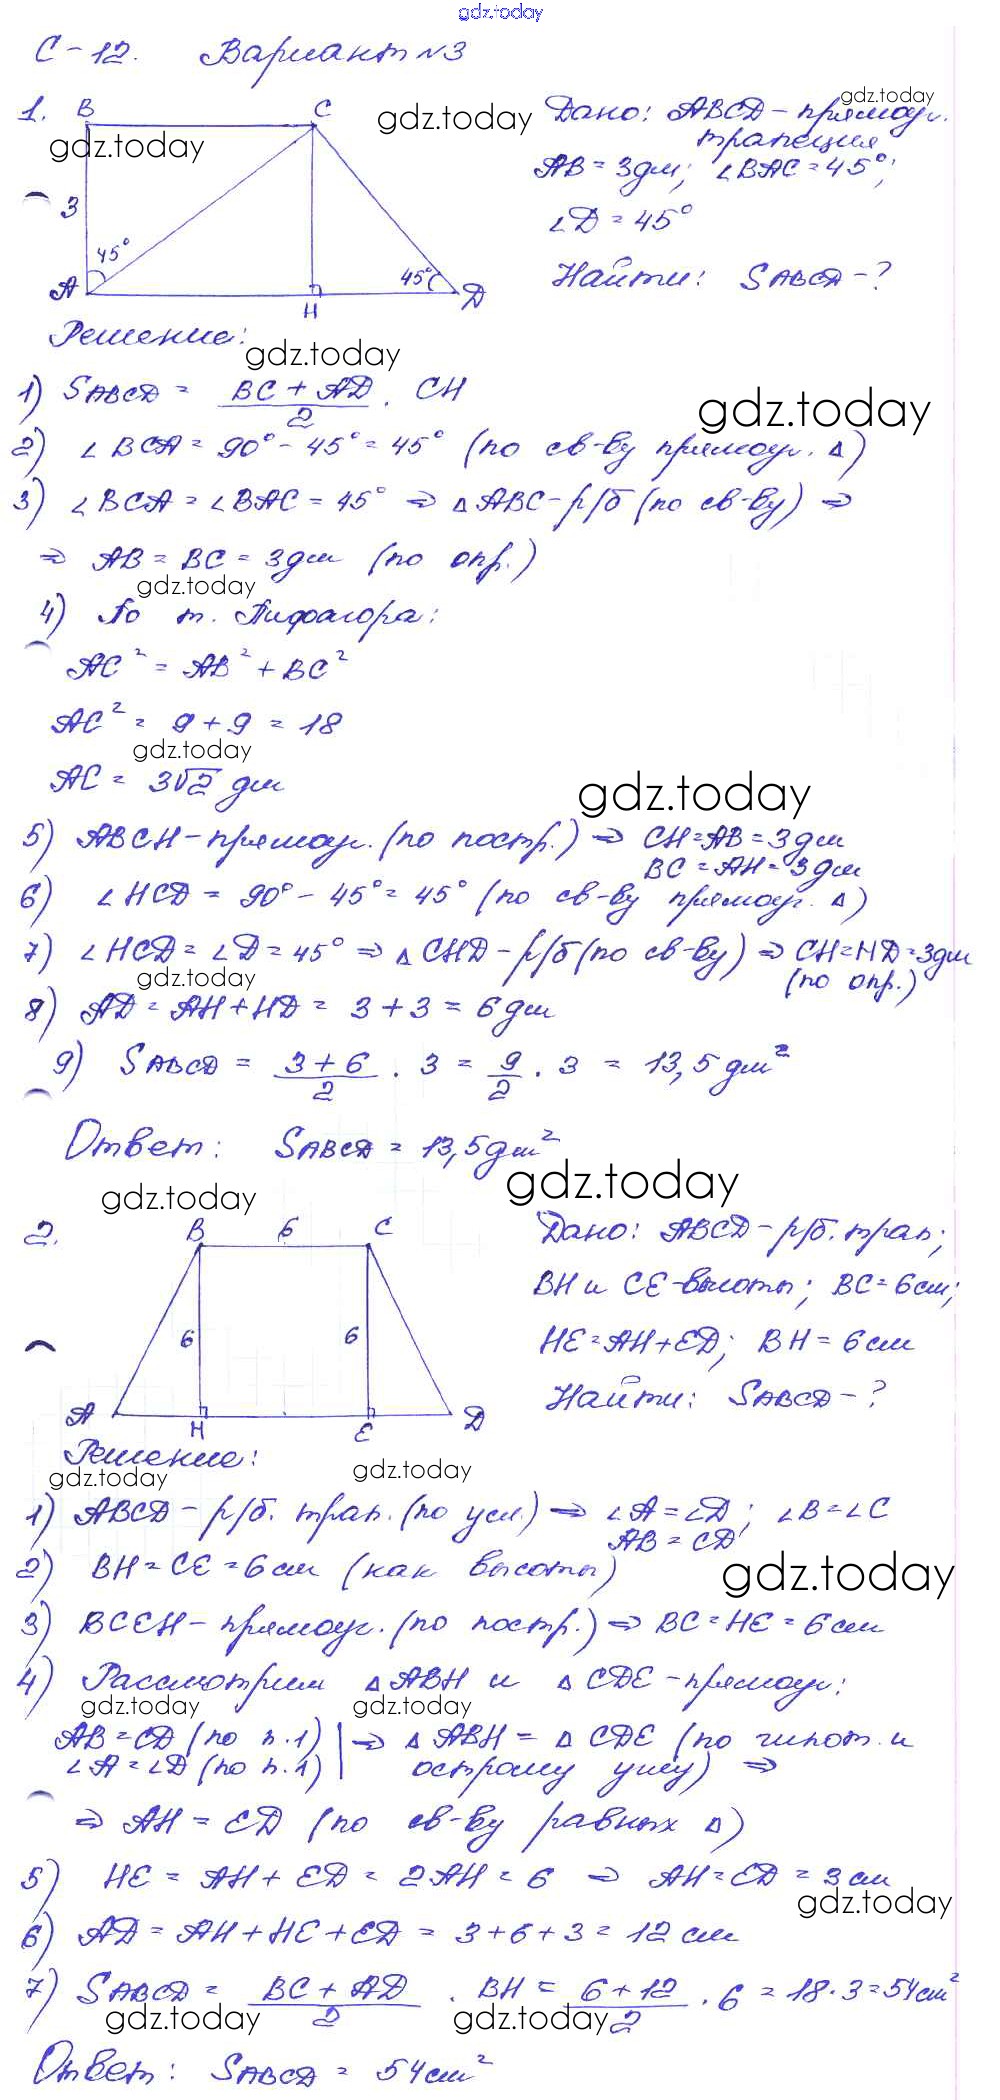 gdz.today
С-12. Вариант №3
1. B C gdz.today gdz.today
Дано: ABCD - прямоуг. gdz.today
трапеция
AB = 3дм; ∠BAC = 45°;
∠D = 45°
Найти: SABCD - ?
3 45° 45°
A H D
Решение: gdz.today
1) SABCD = (BC + AD)/2 · CH gdz.today
2) ∠BCA = 90° - 45° = 45° (по св-ву прямоуг. Δ)
3) ∠BCA = ∠BAC = 45° ⇒ ΔABC - р/б (по св-ву) ⇒
⇒ AB = BC = 3дм (по опр.)
gdz.today
4) По т. Пифагора:
AC² = AB² + BC²
AC² = 9 + 9 = 18
gdz.today
AC = 3√2 дм gdz.today
5) ABCH - прямоуг. (по постр.) ⇒ CH = AB = 3дм
BC = AH = 3дм
6) ∠HCD = 90° - 45° = 45° (по св-ву прямоуг. Δ)
7) ∠HCD = ∠D = 45° ⇒ ΔCHD - р/б (по св-ву) ⇒ CH = HD = 3дм
gdz.today (по опр.)
8) AD = AH + HD = 3 + 3 = 6дм
9) SABCD = (3 + 6)/2 · 3 = 9/2 · 3 = 13,5 дм²
Ответ: SABCD = 13,5дм²
gdz.today gdz.today
2. B 6 C
Дано: ABCD - р/б. трап;
BH и CE - высоты; BC = 6см;
6 6
HE = AH + ED; BH = 6см
Найти: SABCD - ?
A H E D
Решение:
gdz.today gdz.today
1) ABCD - р/б. трап. (по усл.) ⇒ ∠A = ∠D; ∠B = ∠C
AB = CD
2) BH = CE = 6см (как высоты) gdz.today
3) BCEH - прямоуг. (по постр.) ⇒ BC = HE = 6см
4) Рассмотрим ΔABH и ΔCDE - прямоуг:
gdz.today gdz.today
AB = CD (по п.1) | ⇒ ΔABH = ΔCDE (по гипот. и
∠A = ∠D (по п.1) | острому углу) ⇒
⇒ AH = ED (по св-ву равных Δ)
5) HE = AH + ED = 2AH = 6 ⇒ AH = ED = 3см
gdz.today
6) AD = AH + HE + ED = 3 + 6 + 3 = 12 см
7) SABCD = (BC + AD)/2 · BH = (6 + 12)/2 · 6 = 18 · 3 = 54см²
gdz.today gdz.today
Ответ: SABCD = 54см²